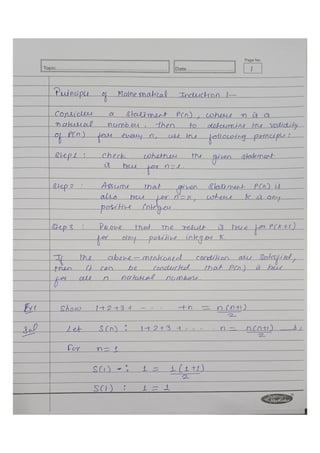 Page No.
Topic
Date
1
Principle of Mathematical Induction :-
Consider a statement P(n), where n is a
natural number. Then to determine the validity
of P(n) for every n, use the following principle:
Step 1 : Check whether the given statement
is true for n=1.
Step 2 : Assume that given statement P(n) is
also true for n=k, where k is any
positive integer
Step 3 : Prove that the result is true for P(k+1)
for any positive integer k.
If the above-mentioned condition are satisfied,
then it can be concluded that P(n) is true
for all n natural numbers.
Ex1 Show 1+2+3+ - - - - +n = n(n+1)/2
Sol Let S(n) : 1+2+3+ - - - - n = n(n+1)/2
For n=1
S(1) : 1 = 1(1+1)/2
S(1) : 1 = 1